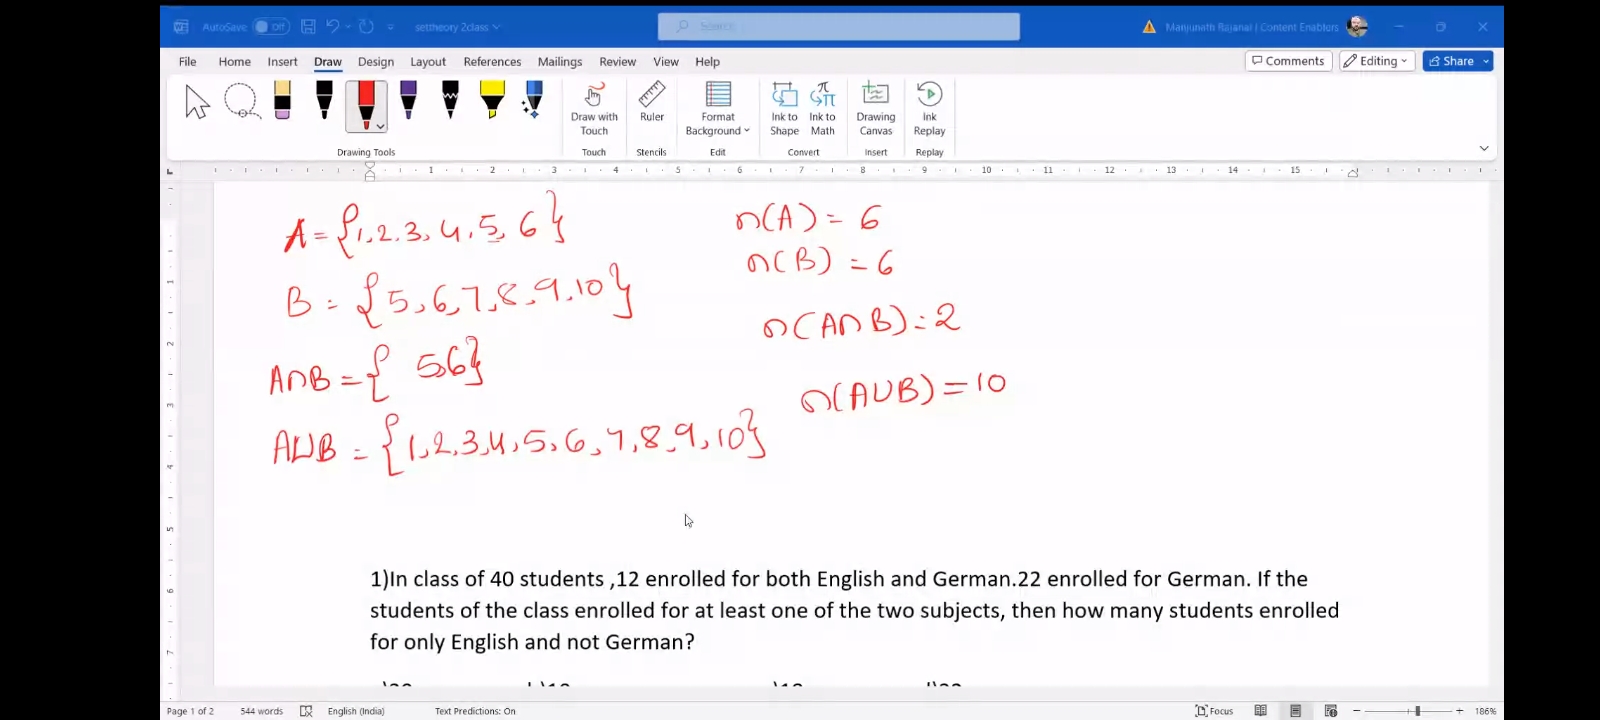 AutoSave Off settheory 2class Search Manjunath Rajanal | Content Enablers
File Home Insert Draw Design Layout References Mailings Review View Help Comments Editing Share
Draw with Touch Ruler Format Background Ink to Shape Ink to Math Drawing Canvas Ink Replay
Drawing Tools Touch Stencils Edit Convert Insert Replay
1 2 3 4 5 6 7 8 9 10 11 12 13 14 15
A = {1, 2, 3, 4, 5, 6} n(A) = 6
B = {5, 6, 7, 8, 9, 10} n(B) = 6
A∩B = { 5,6} n(A∩B) = 2
A∪B = {1, 2, 3, 4, 5, 6, 7, 8, 9, 10} n(A∪B) = 10
1)In class of 40 students ,12 enrolled for both English and German.22 enrolled for German. If the
students of the class enrolled for at least one of the two subjects, then how many students enrolled
for only English and not German?
Page 1 of 2 544 words English (India) Text Predictions: On Focus 186%